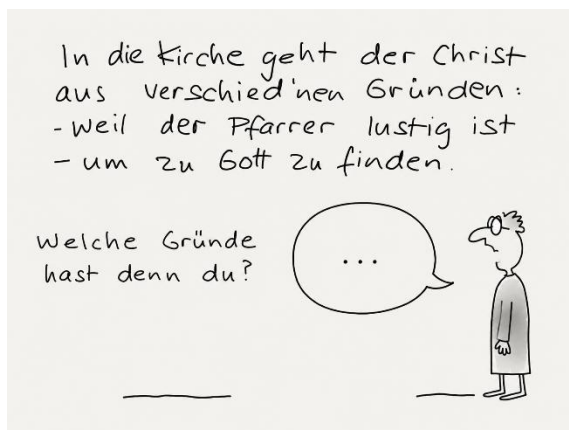 In die Kirche geht der Christ
aus verschied'nen Gründen:
- weil der Pfarrer lustig ist
- um zu Gott zu finden.
Welche Gründe
hast denn du?
...